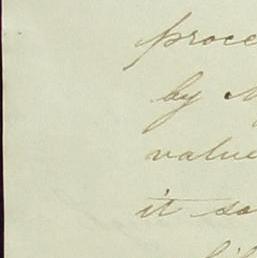 proce
by M
value
it so